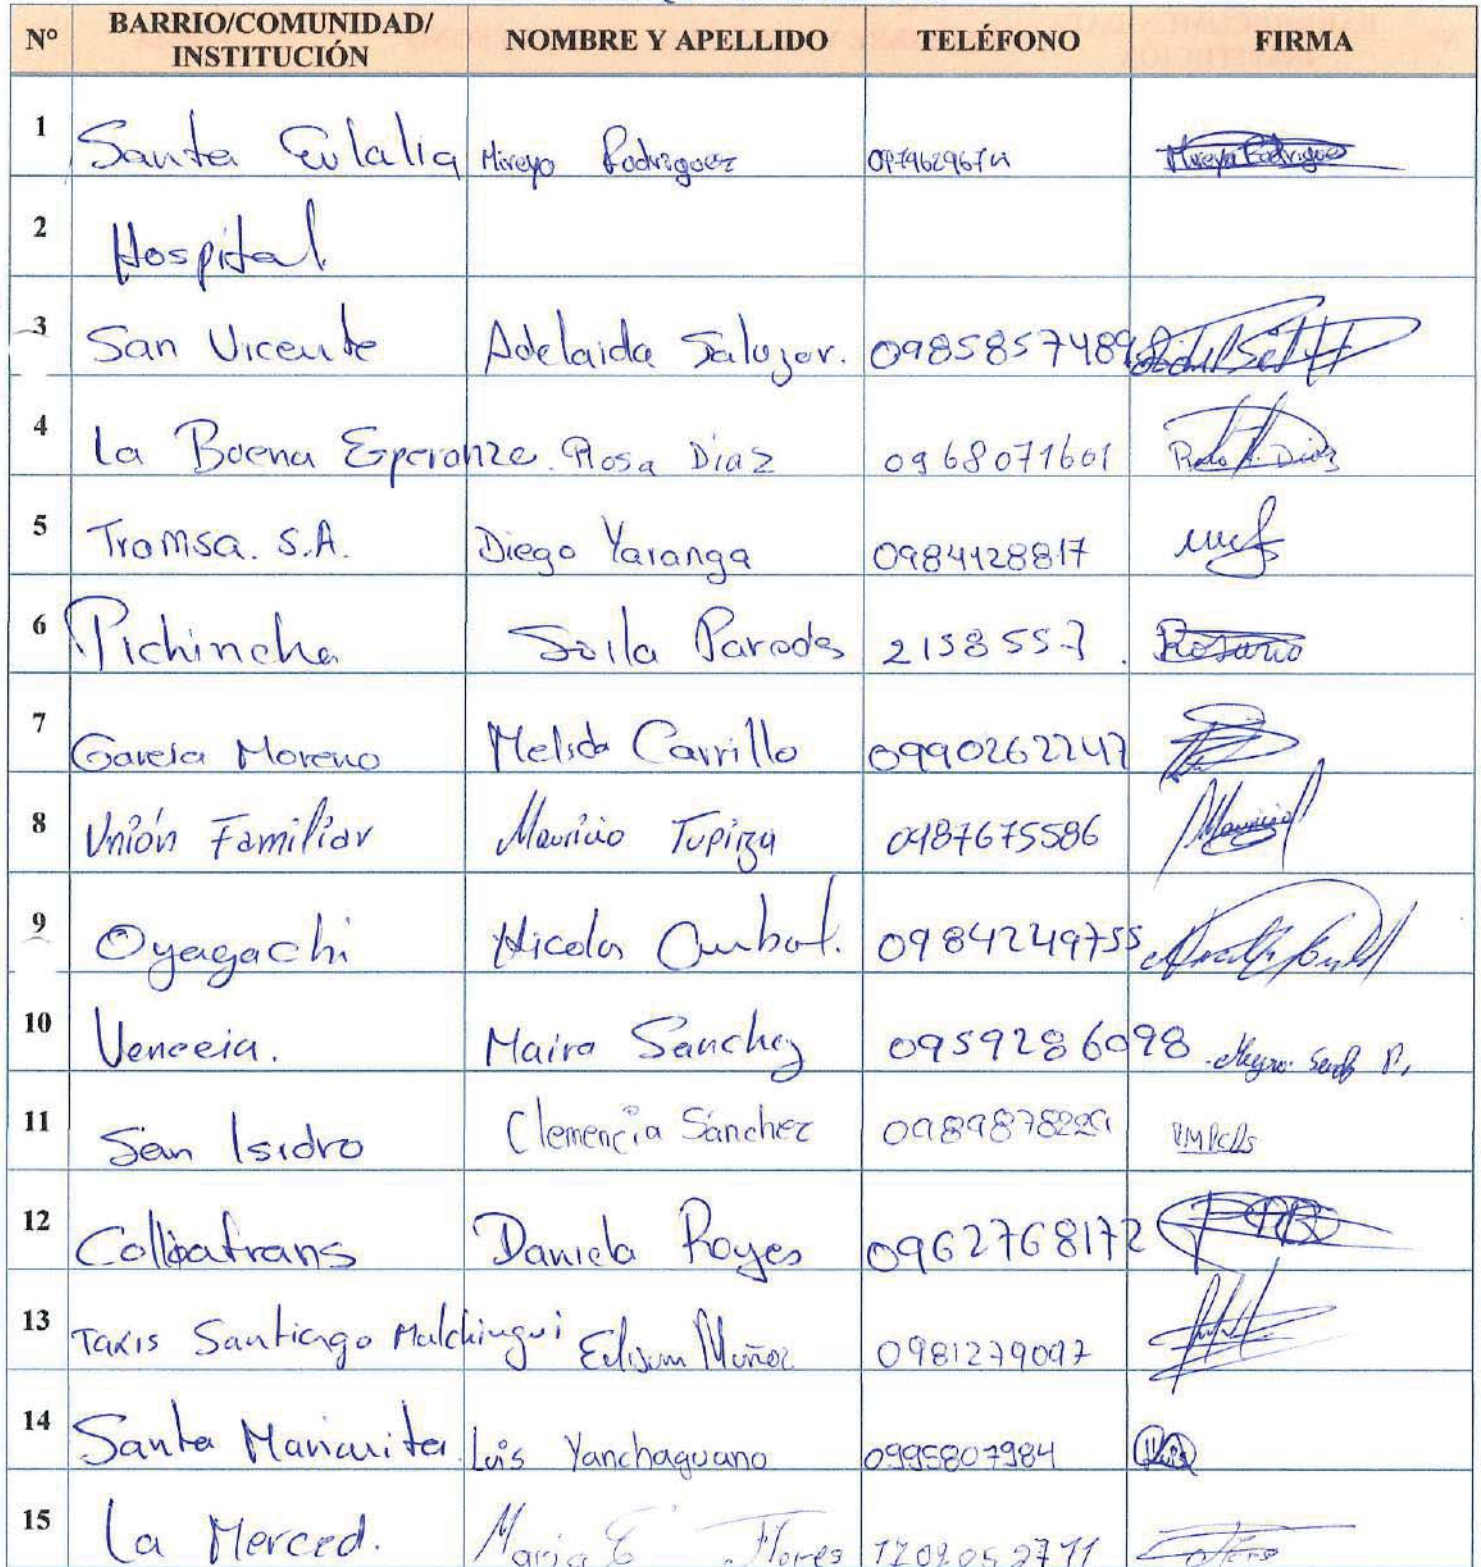 N° BARRIO/COMUNIDAD/ INSTITUCIÓN NOMBRE Y APELLIDO TELÉFONO FIRMA
1 Santa Eulalia Mireya Rodriguez Mireya Rodriguez
2 Hospital
3 San Vicente Adelaida Salazar. 0985857489
4 La Buena Esperanza. Rosa Díaz 0968071601
5 Tromsa. S.A. Diego Yaranga 0984128817
6 Pichincha Soila Paredes 2158557. Rosario
7 Garcia Moreno Melida Carrillo 0990262247
8 Unión Familiar Mauricio Tupiza 0987675586 Mauricio
9 Oyagachi Nicolas 0984249755
10 Venecia. Maira Sanchez 0959286098
11 San Isidro Clemencia Sánchez
12 Daniela Royes 0962768172
13 Taxis Santiago Malchingui Edison Muñoz 0981279097
14 Santa Marianita Luis Yanchaguano 0995807984 Luis
15 La Merced. Maria E Flores 1702052711